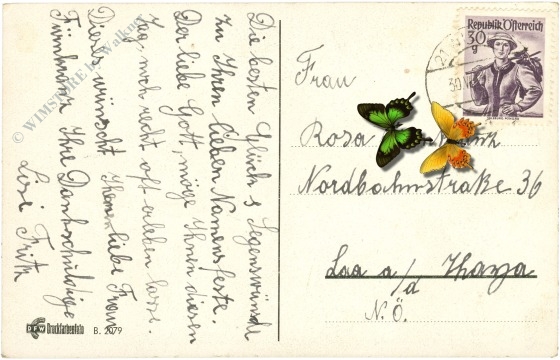 Die besten Glück & Segenswünsche
zu Ihren lieben Namensfeste.
Der liebe Gott, möge Ihnen diesen
Tag noch recht oft erleben lass.
Dieses wünscht Ihnen liebe Frau
Ihre Dankschuldige
Lisi Fritz
© WIMSTORE by Walker
DFW Druckfarbenfoto B. 2079
Republik Österreich
30
g
Frau
Rosa
Nordbahnstraße 36
Laa a/d Thaya
N.Ö.